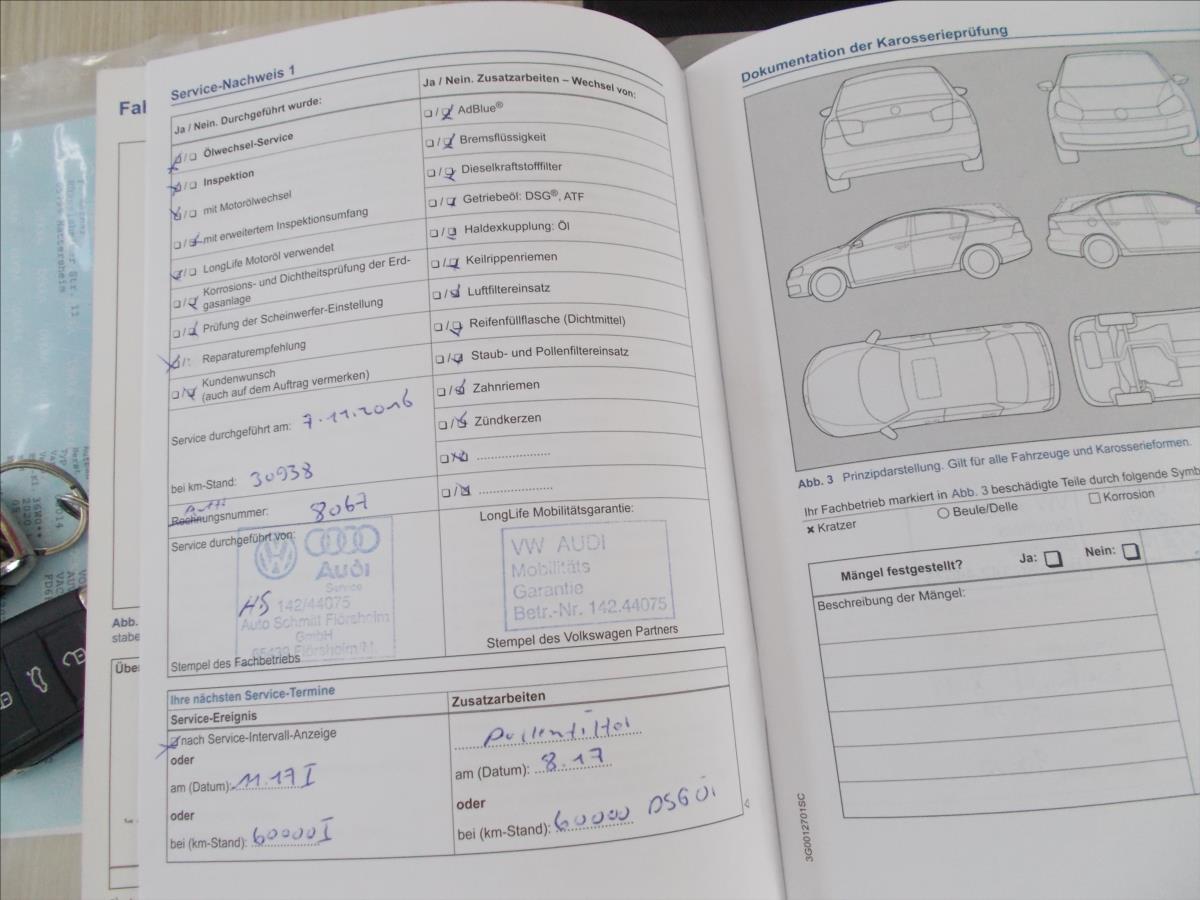 Service-Nachweis 1
Ja / Nein. Durchgeführt wurde:
Ölwechsel-Service
Inspektion
mit Motorölwechsel
mit erweitertem Inspektionsumfang
LongLife Motoröl verwendet
Korrosions- und Dichtheitsprüfung der Erd-
gasanlage
Prüfung der Scheinwerfer-Einstellung
Reparaturempfehlung
Kundenwunsch
(auch auf dem Auftrag vermerken)
Service durchgeführt am: 7.11.2016
bei km-Stand: 30938
Rechnungsnummer: 8067
Service durchgeführt von:
Audi
Service
HS 142/44075
Auto Schmitt Flörsheim
GmbH
65439 Flörsheim/M.
Stempel des Fachbetriebs
Ja / Nein. Zusatzarbeiten – Wechsel von:
AdBlue®
Bremsflüssigkeit
Dieselkraftstofffilter
Getriebeöl: DSG®, ATF
Haldexkupplung: Öl
Keilrippenriemen
Luftfiltereinsatz
Reifenfüllflasche (Dichtmittel)
Staub- und Pollenfiltereinsatz
Zahnriemen
Zündkerzen
LongLife Mobilitätsgarantie:
VW AUDI
Mobilitäts
Garantie
Betr.-Nr. 142.44075
Stempel des Volkswagen Partners
Ihre nächsten Service-Termine
Service-Ereignis
nach Service-Intervall-Anzeige
oder
am (Datum): 11.17 I
oder
bei (km-Stand): 60000 I
Zusatzarbeiten
Pollenfilter
am (Datum): 8.17
oder
bei (km-Stand): 60000 DSG Öl
Dokumentation der Karosserieprüfung
Abb. 3 Prinzipdarstellung. Gilt für alle Fahrzeuge und Karosserieformen.
Ihr Fachbetrieb markiert in Abb. 3 beschädigte Teile durch folgende Symb
Kratzer
Beule/Delle
Korrosion
Mängel festgestellt? Ja: Nein:
Beschreibung der Mängel:
3G0012701SC
Fal
Abb.
stabe
Übe